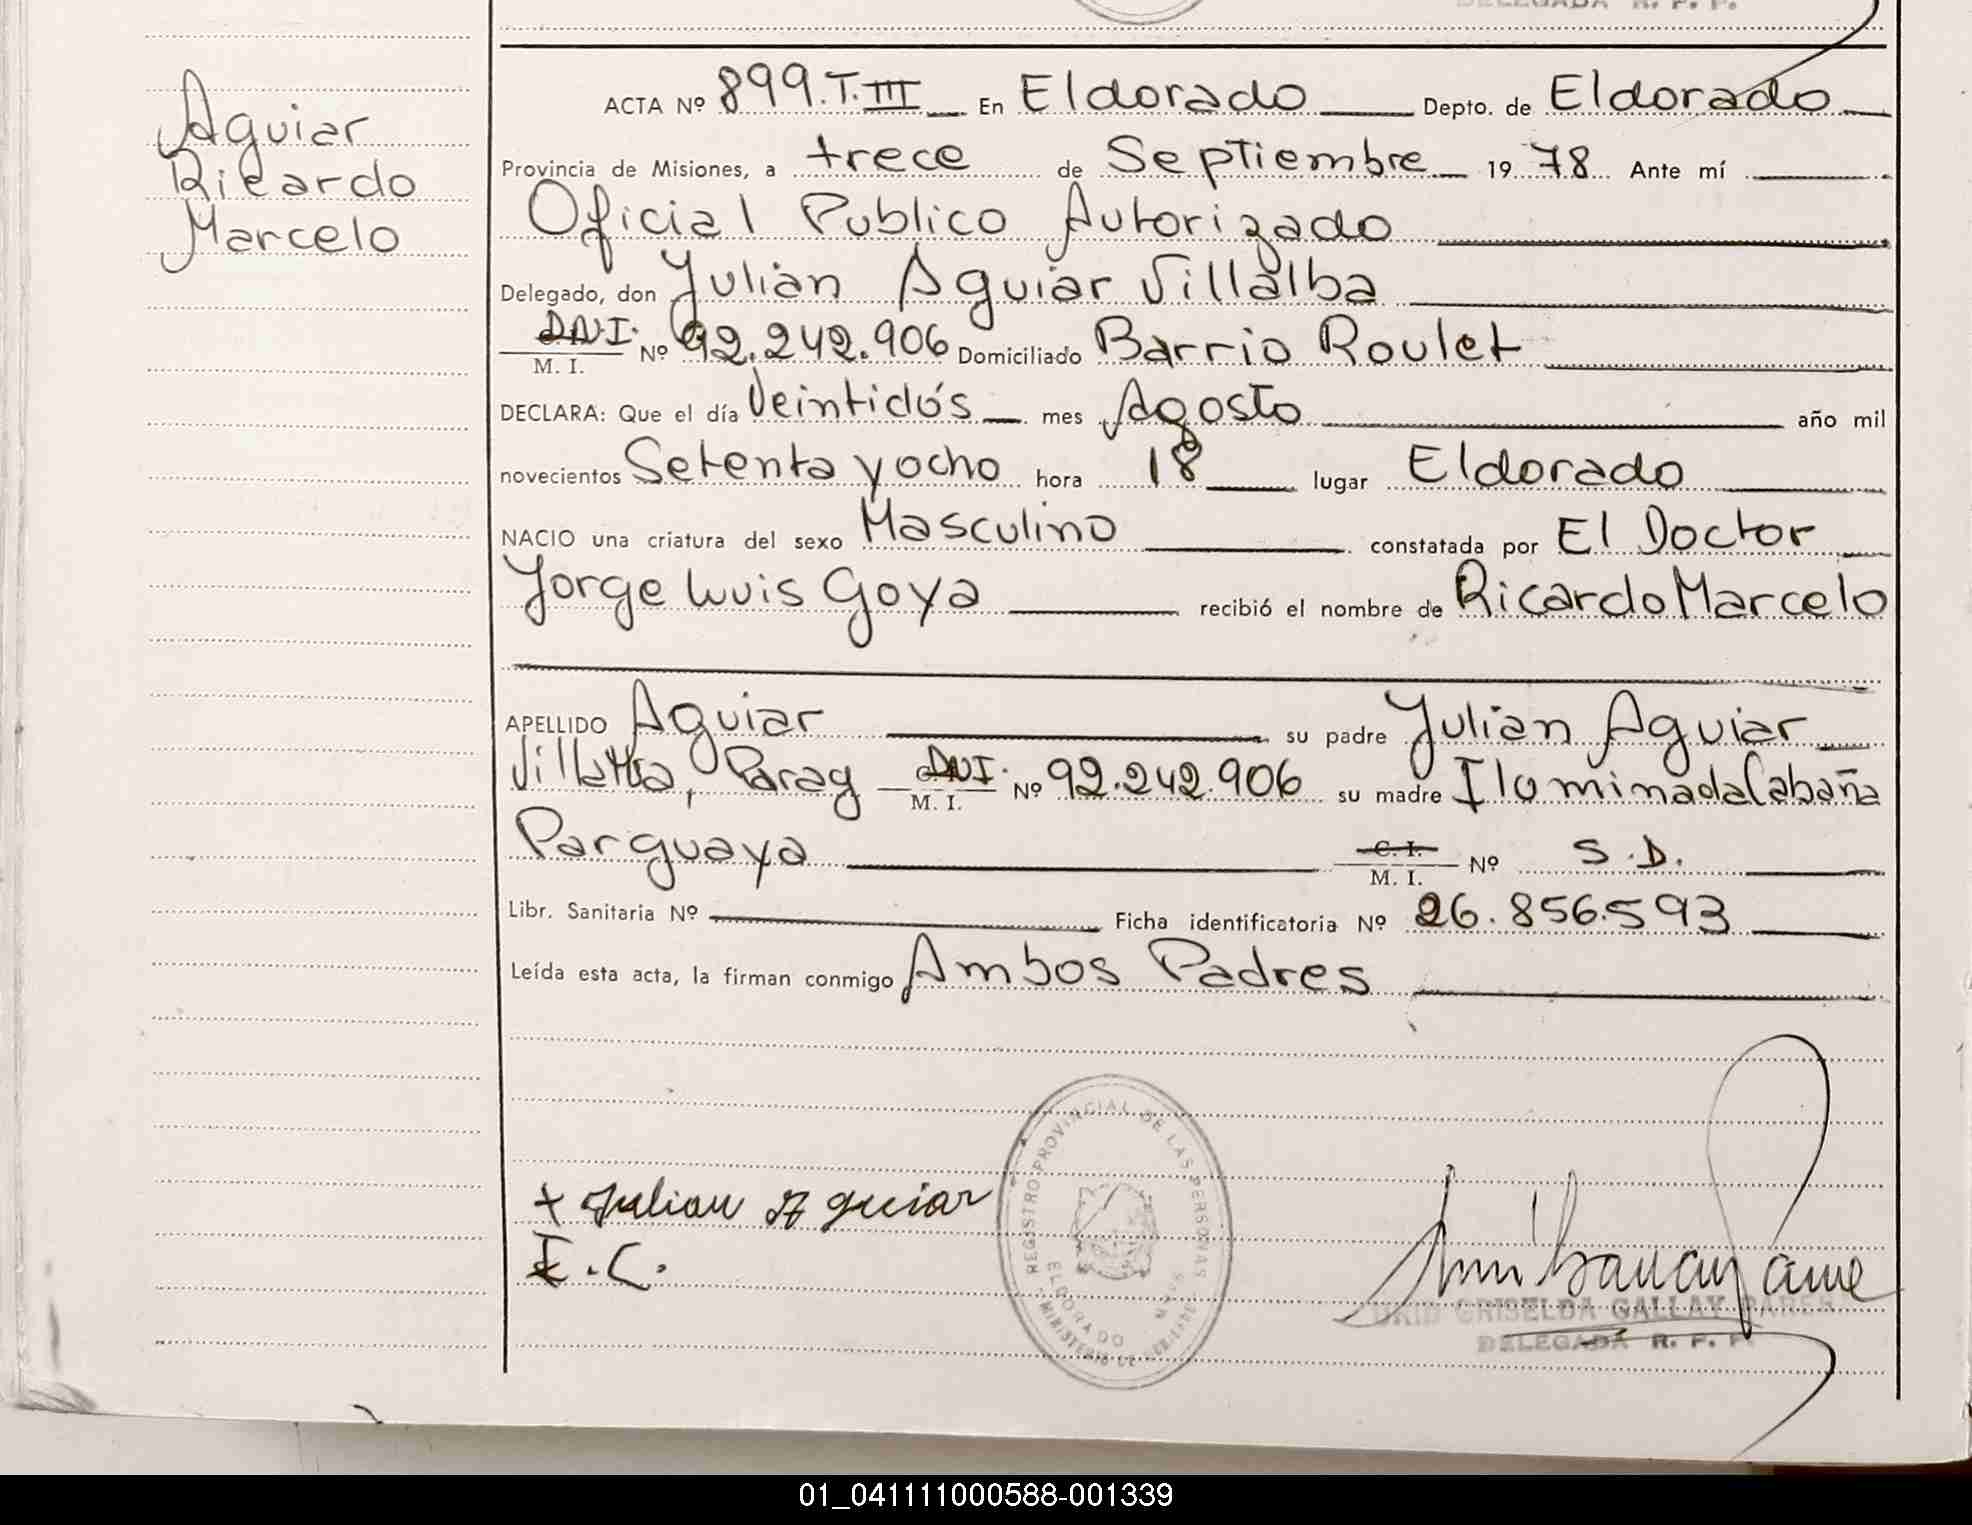 DELEGADA R. P. P.
Aguiar
Ricardo
Marcelo
ACTA Nº 899.T.III En Eldorado Depto. de Eldorado
Provincia de Misiones, a trece de Septiembre 1978 Ante mí
Oficial Publico Autorizado
Delegado, don Julian Aguiar Villalba
DNI. M. I. Nº 92.242.906 Domiciliado Barrio Roulet
DECLARA: Que el día Veintidós mes Agosto año mil
novecientos Setenta y ocho hora 18 lugar Eldorado
NACIO una criatura del sexo Masculino constatada por El Doctor
Jorge Luis Goya recibió el nombre de Ricardo Marcelo
APELLIDO Aguiar su padre Julian Aguiar
Villalba, Parag DNI. M. I. Nº 92.242.906 su madre Iluminada Cabaña
Parguaya C. I. M. I. Nº S.D.
Libr. Sanitaria Nº Ficha identificatoria Nº 26.856.593
Leída esta acta, la firman conmigo Ambos Padres
+ Julian Aguiar
I.C.
REGISTRO PROVINCIAL DE LAS PERSONAS
ELDORADO
MINISTERIO DE
GRISELDA GALLAY
DELEGADA R. P. P.
01_041111000588-001339